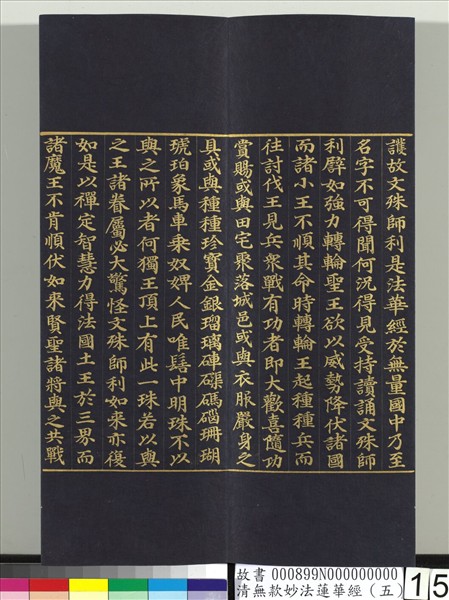 護故文殊師利是法華經於無量國中乃至
名字不可得聞何況得見受持讀誦文殊師
利譬如強力轉輪聖王欲以威勢降伏諸國
而諸小王不順其命時轉輪王起種種兵而
往討伐王見兵眾戰有功者即大歡喜隨功
賞賜或與田宅聚落城邑或與衣服嚴身之
具或與種種珍寶金銀瑠璃硨磲碼碯珊瑚
琥珀象馬車乘奴婢人民唯髻中明珠不以
與之所以者何獨王頂上有此一珠若以與
之王諸眷屬必大驚怪文殊師利如來亦復
如是以禪定智慧力得法國土王於三界而
諸魔王不肯順伏如來賢聖諸將與之共戰
故書 000899N000000000
清無款妙法蓮華經（五） 15